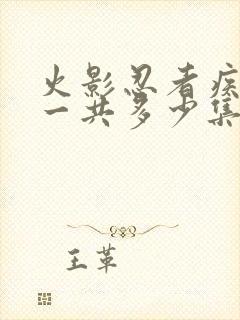 火影忍者疾
一共多少集
王革